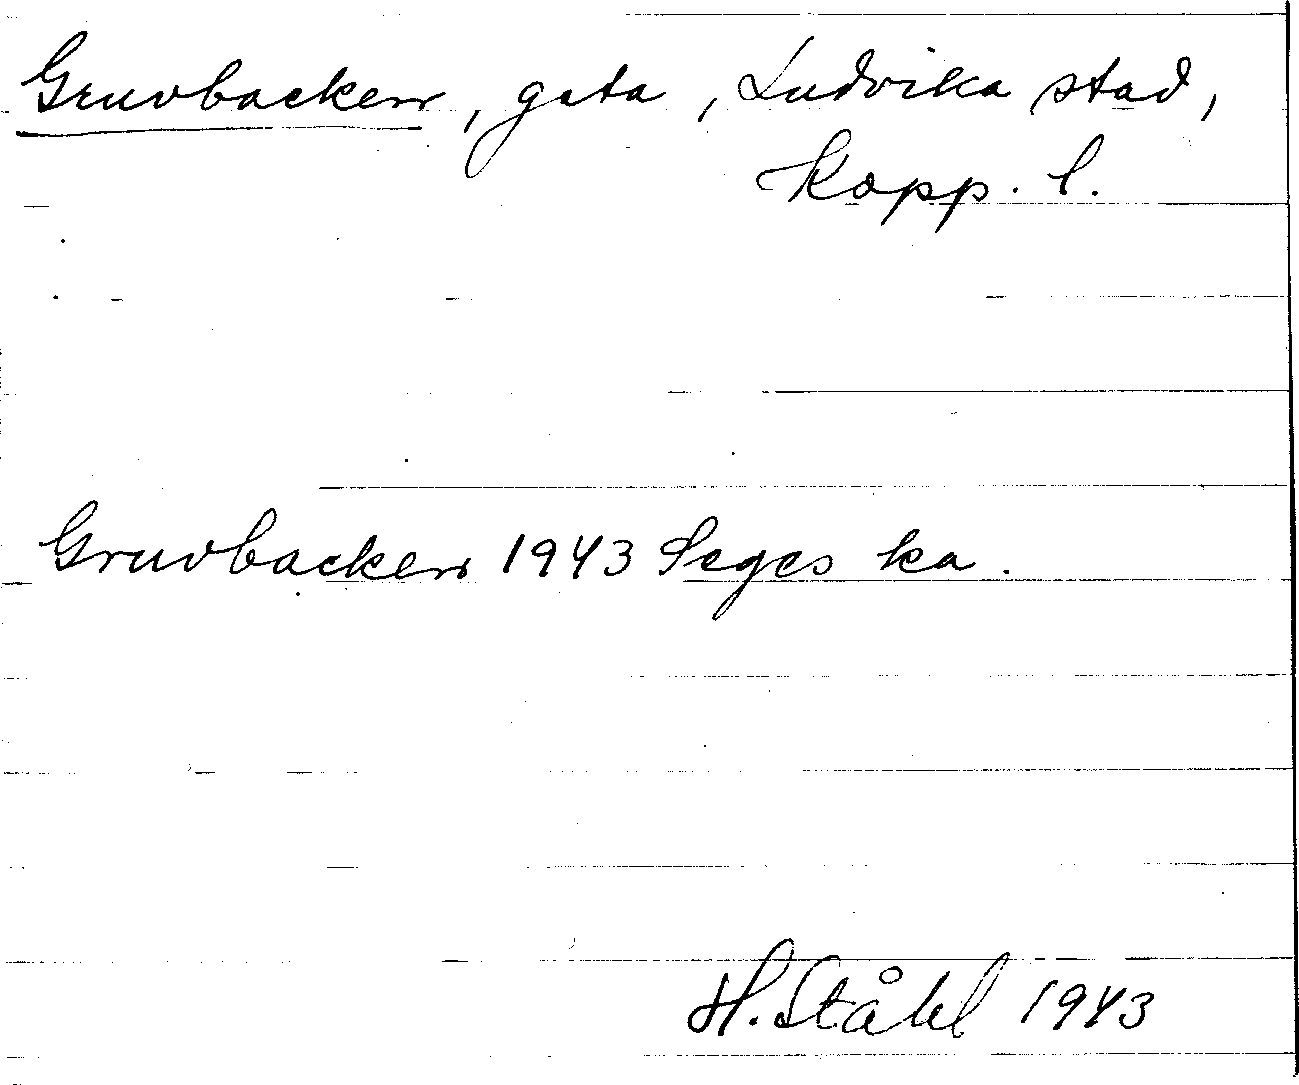 Gruvbacken, gata, Ludvika stad,
Kopp. l.
Gruvbacken 1943 Seges ka.
H. Ståhl 1943